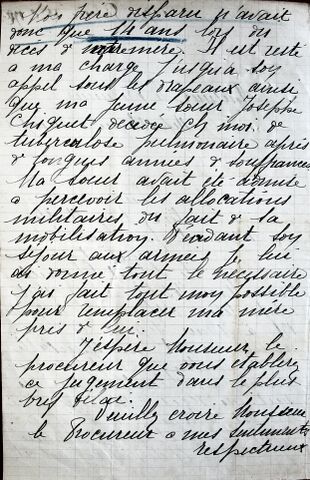 Mon frère disparu n'avait
donc que 14 ans lors du
décès de ma mère. Il est resté
a ma charge jusqu'a son
appel sous les drapeaux ainsi
que ma jeune sœur Josèphe
Chiquet, decedée chez moi de
tuberculose pulmonaire après
de longues années de souffrances
Ma sœur avait été admise
a percevoir les allocations
militaires du fait de sa
mobilisation. Pendant son
séjour aux armées je lui
ai donné tout le nécessaire
j'ai fait tout mon possible
pour remplacer ma mère
près de lui.
J'espère Monsieur le
procureur que vous établirez
ce jugement dans le plus
bref délai.
Veuillez croire Monsieur
le Procureur a mes sentiments
respectueux